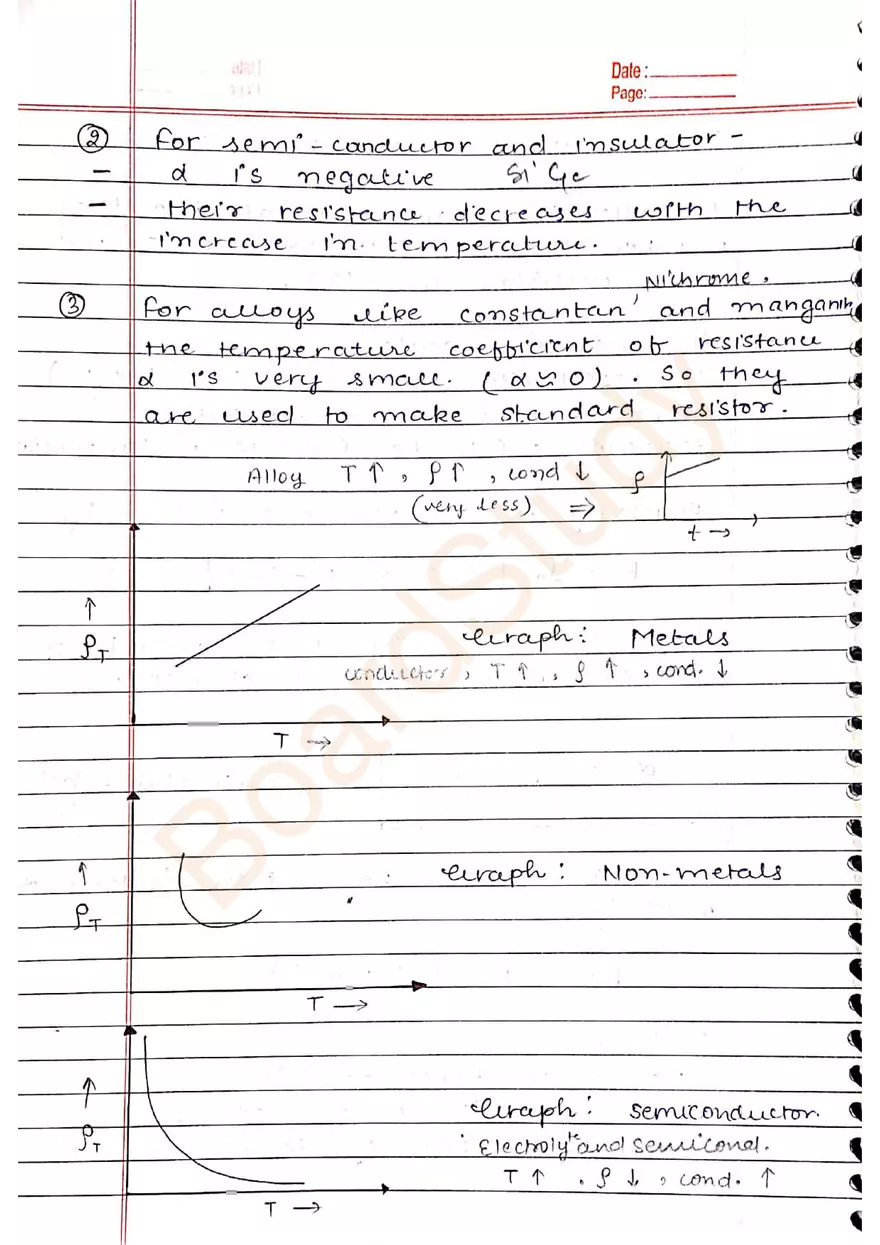 Date:
Page:
② for semi-conductor and insulator -
- α is negative Si Ge
- their resistance decreases with the
increase in temperature.
Nichrome,
③ for alloys like constantan and manganin,
the temperature coefficient of resistance
α is very small. (α ≈ 0). So they
are used to make standard resistor.
Alloy T↑, ρ↑, cond↓
(very less) ⇒
ρ
t →
↑
ρT
Graph: Metals
conductors, T↑, ρ↑, cond.↓
T →
↑
ρT
Graph: Non-metals
T →
↑
ρT
Graph: semiconductor.
Electrolyte and semicond.
T↑, ρ↓, cond.↑
T →
BoardStudy